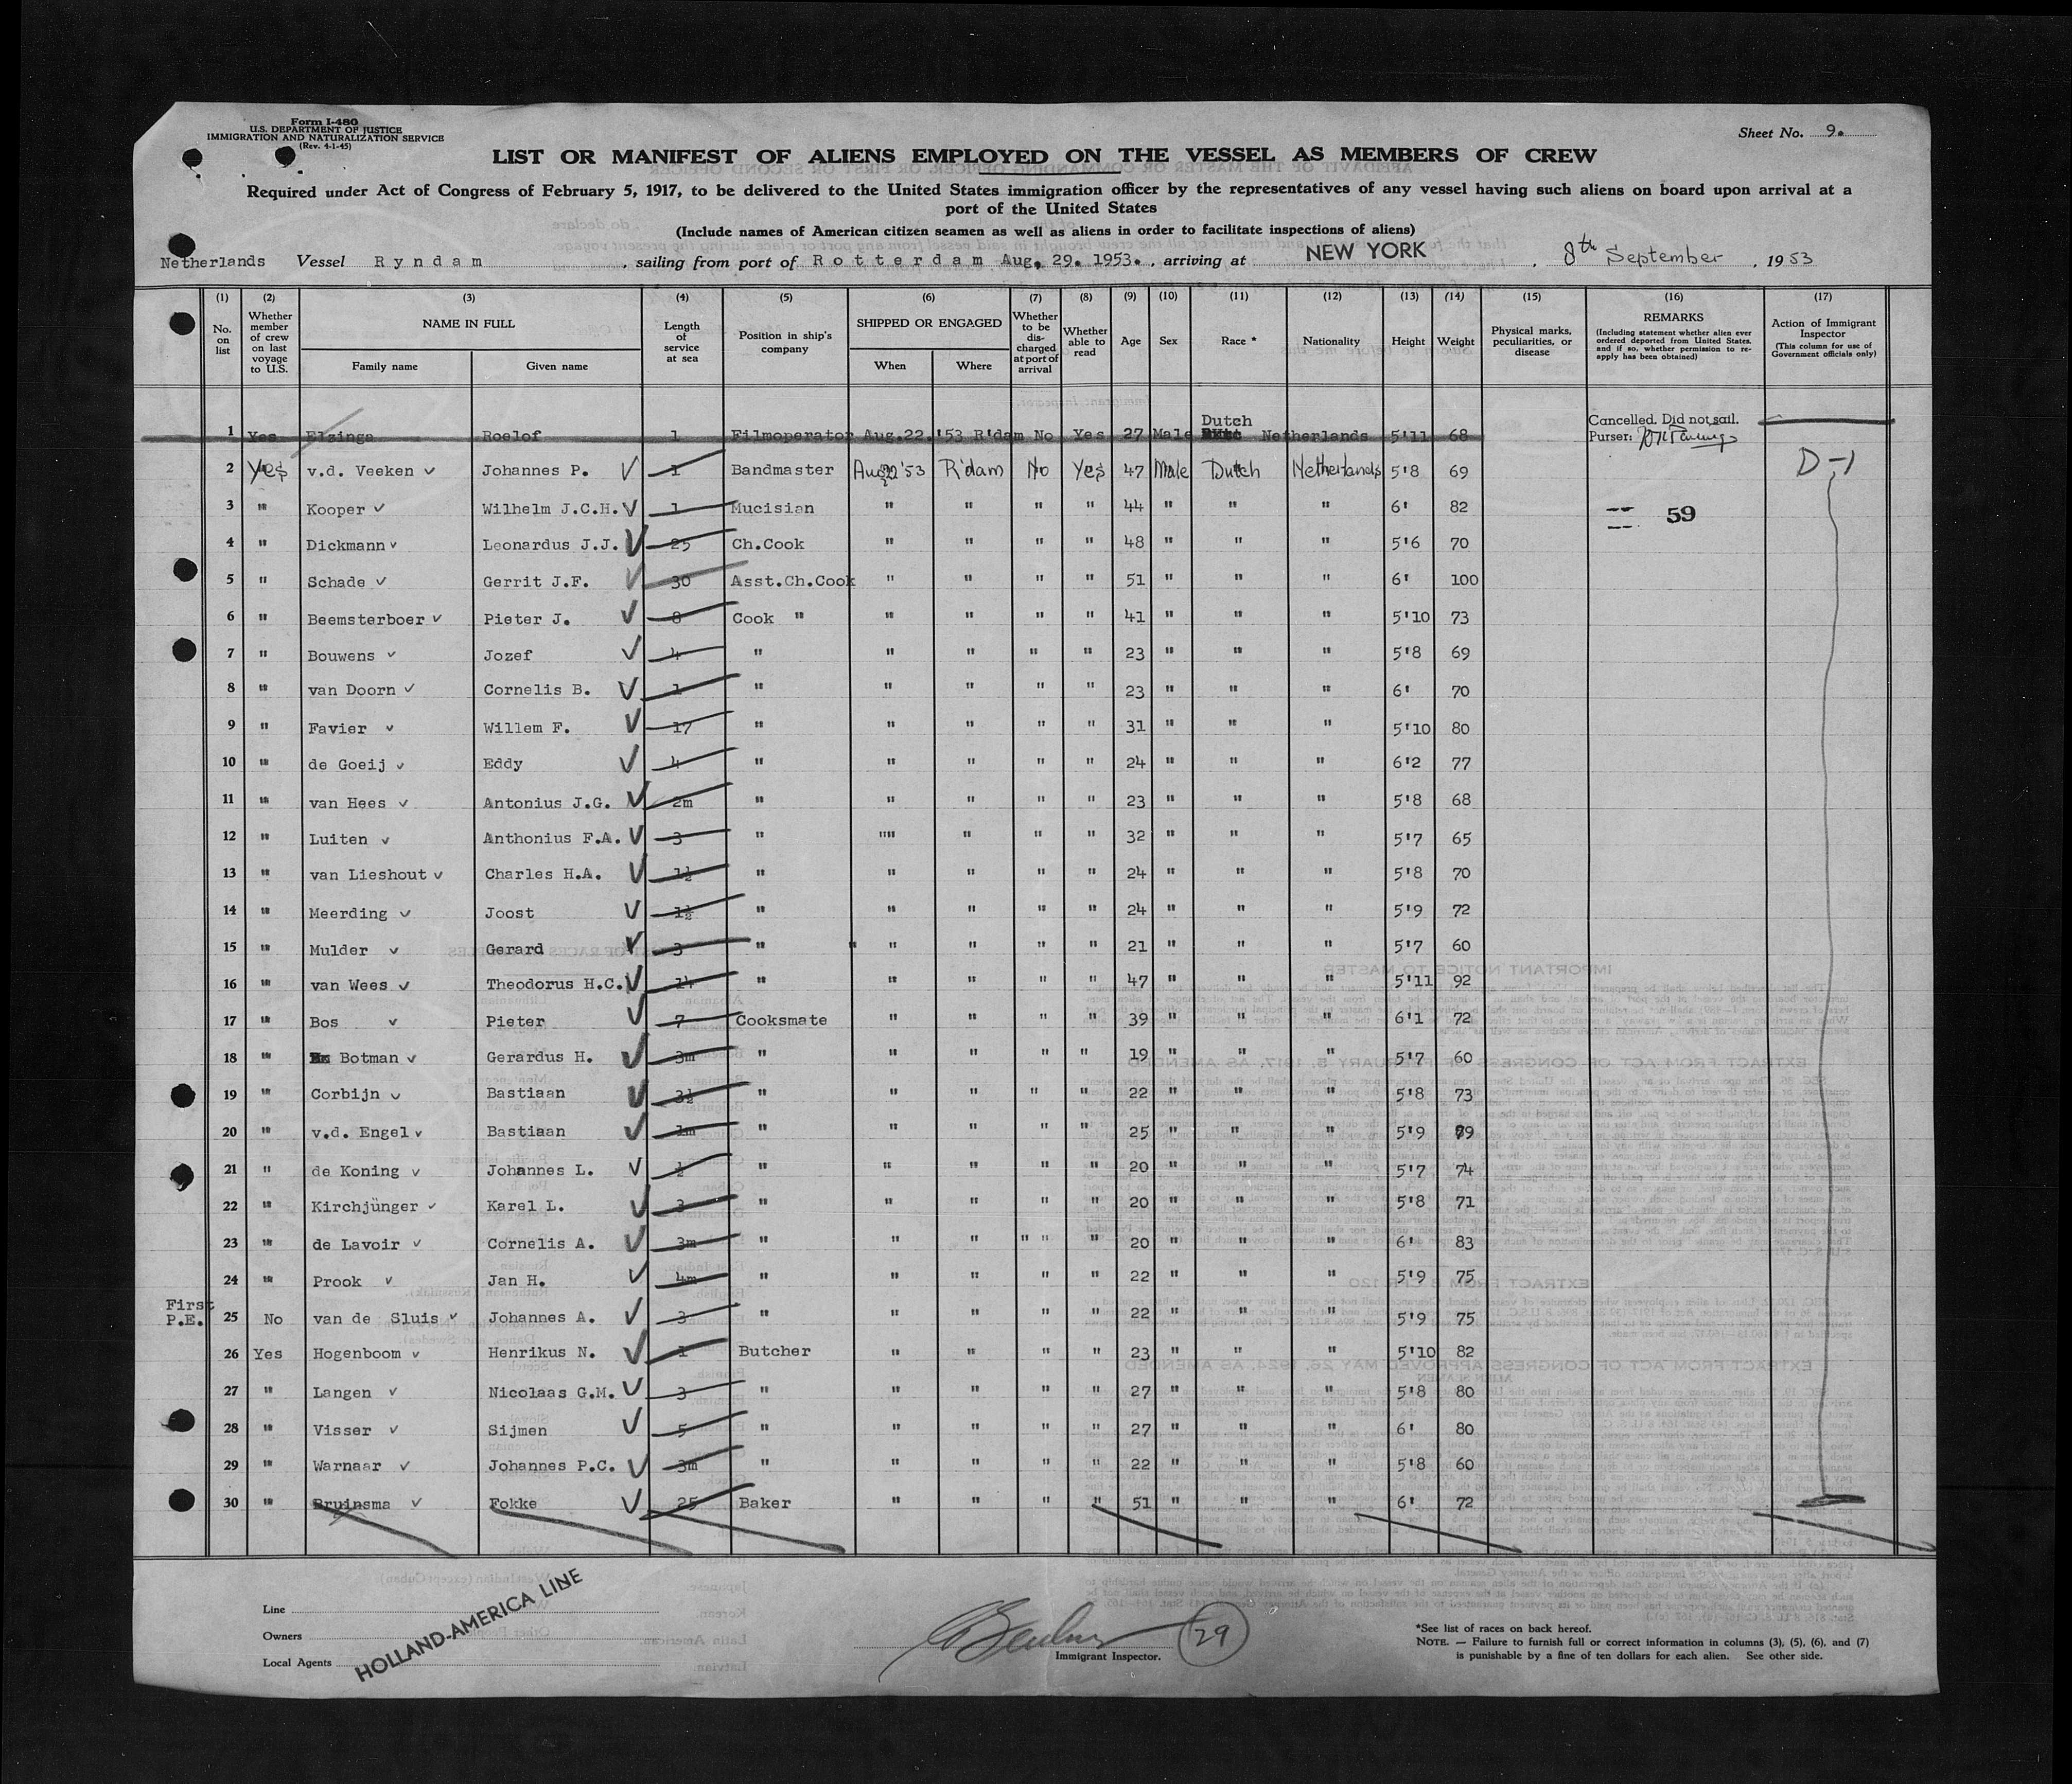 Form I-480
U.S. DEPARTMENT OF JUSTICE
IMMIGRATION AND NATURALIZATION SERVICE
(Rev. 4-1-45)
Sheet No. 9.
LIST OR MANIFEST OF ALIENS EMPLOYED ON THE VESSEL AS MEMBERS OF CREW
Required under Act of Congress of February 5, 1917, to be delivered to the United States immigration officer by the representatives of any vessel having such aliens on board upon arrival at a
port of the United States
(Include names of American citizen seamen as well as aliens in order to facilitate inspections of aliens)
Netherlands Vessel Ryndam, sailing from port of Rotterdam Aug. 29. 1953., arriving at NEW YORK, 8th September, 1953
(1) (2) (3) (4) (5) (6) (7) (8) (9) (10) (11) (12) (13) (14) (15) (16) (17)
No. on list
Whether member of crew on last voyage to U.S.
NAME IN FULL
Family name Given name
Length of service at sea
Position in ship's company
SHIPPED OR ENGAGED
When Where
Whether to be discharged at port of arrival
Whether able to read
Age Sex Race * Nationality Height Weight
Physical marks, peculiarities, or disease
REMARKS
(Including statement whether alien ever ordered deported from United States, and if so, whether permission to reapply has been obtained)
Action of Immigrant Inspector
(This column for use of Government officials only)
1 Yes Elzinga Roelof 1 Filmoperator Aug.22.'53 R'dam No Yes 27 Male Dutch Netherlands 5'11 68 Cancelled. Did not sail.
Purser:
2 Yes v.d. Veeken Johannes P. 1 Bandmaster Aug 22 '53 R'dam No Yes 47 Male Dutch Netherlands 5'8 69 D-1
3 " Kooper Wilhelm J.C.H. 1 Mucisian " " " " 44 " " " 6' 82 59
4 " Dickmann Leonardus J.J. 25 Ch.Cook " " " " 48 " " " 5'6 70
5 " Schade Gerrit J.F. 30 Asst.Ch.Cook " " " " 51 " " " 6' 100
6 " Beemsterboer Pieter J. 8 Cook " " " " " 41 " " " 5'10 73
7 " Bouwens Jozef 4 " " " " " 23 " " " 5'8 69
8 " van Doorn Cornelis B. 1 " " " " " 23 " " " 6' 70
9 " Favier Willem F. 17 " " " " " 31 " " " 5'10 80
10 " de Goeij Eddy 4 " " " " " 24 " " " 6'2 77
11 " van Hees Antonius J.G. 2m " " " " " 23 " " " 5'8 68
12 " Luiten Anthonius F.A. 3 " "" " " " 32 " " " 5'7 65
13 " van Lieshout Charles H.A. 1½ " " " " " 24 " " " 5'8 70
14 " Meerding Joost 1½ " " " " " 24 " " " 5'9 72
15 " Mulder Gerard 3 " " " " " " 21 " " " 5'7 60
16 " van Wees Theodorus H.C. 14 " " " " " 47 " " " 5'11 92
17 " Bos Pieter 7 Cooksmate " " " " 39 " " " 6'1 72
18 " Botman Gerardus H. 3m " " " " " 19 " " " 5'7 60
19 " Corbijn Bastiaan 3½ " " " " " 22 " " " 5'8 73
20 " v.d. Engel Bastiaan 1m " " " " " 25 " " " 5'9 79
21 " de Koning Johannes L. ½ " " " " " 20 " " " 5'7 74
22 " Kirchjünger Karel L. 3 " " " " " 20 " " " 5'8 71
23 " de Lavoir Cornelis A. 3m " " " " " " 20 " " " 6' 83
24 " Prook Jan H. 4m " " " " " 22 " " " 5'9 75
First P.E. 25 No van de Sluis Johannes A. 3 " " " " " 22 " " " 5'9 75
26 Yes Hogenboom Henrikus N. 1 Butcher " " " " 23 " " " 5'10 82
27 " Langen Nicolaas G.M. 3 " " " " " 27 " " " 5'8 80
28 " Visser Sijmen 5 " " " " " 27 " " " 6' 80
29 " Warnaar Johannes P.C. 3m " " " " " 22 " " " 5'8 60
30 " Bruinsma Fokke 25 Baker " " " " 51 " " " 6' 72
Line
Owners
Local Agents
HOLLAND-AMERICA LINE
Immigrant Inspector.
29
*See list of races on back hereof.
NOTE. — Failure to furnish full or correct information in columns (3), (5), (6), and (7)
is punishable by a fine of ten dollars for each alien. See other side.